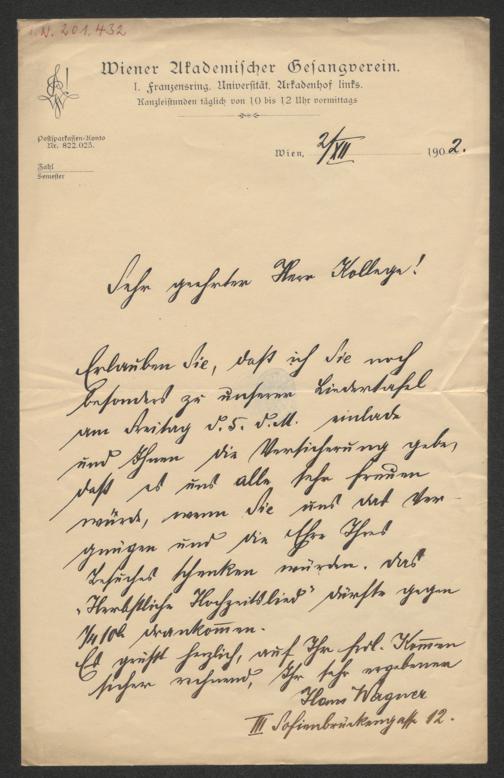 I.N. 201.432
Wiener Akademischer Gesangverein.
I. Franzensring, Universität, Arkadenhof links.
Kanzleistunden täglich von 10 bis 12 Uhr vormittags
Postsparkassen-Konto
Nr. 822.025.
Zahl
Semester
Wien, 2/XII 1902.
Sehr geehrter Herr Kollege!
Erlauben Sie, daß ich Sie noch
besonders zu unserer Liedertafel
am Freitag d. 5. d. M. einlade
und Ihnen die Versicherung gebe,
daß es uns alle sehr freuen
würde, wenn Sie uns das Ver-
gnügen und die Ehre Ihres
Besuches schenken würden. Das
"Herbstliche Hochzeitslied" dürfte gegen
1/4 10h drankommen.
Es grüßt herzlich, auf Ihr frdl. Kommen
sicher rechnend, Ihr sehr ergebener
Hans Wagner
III Sofienbrückengasse 12.